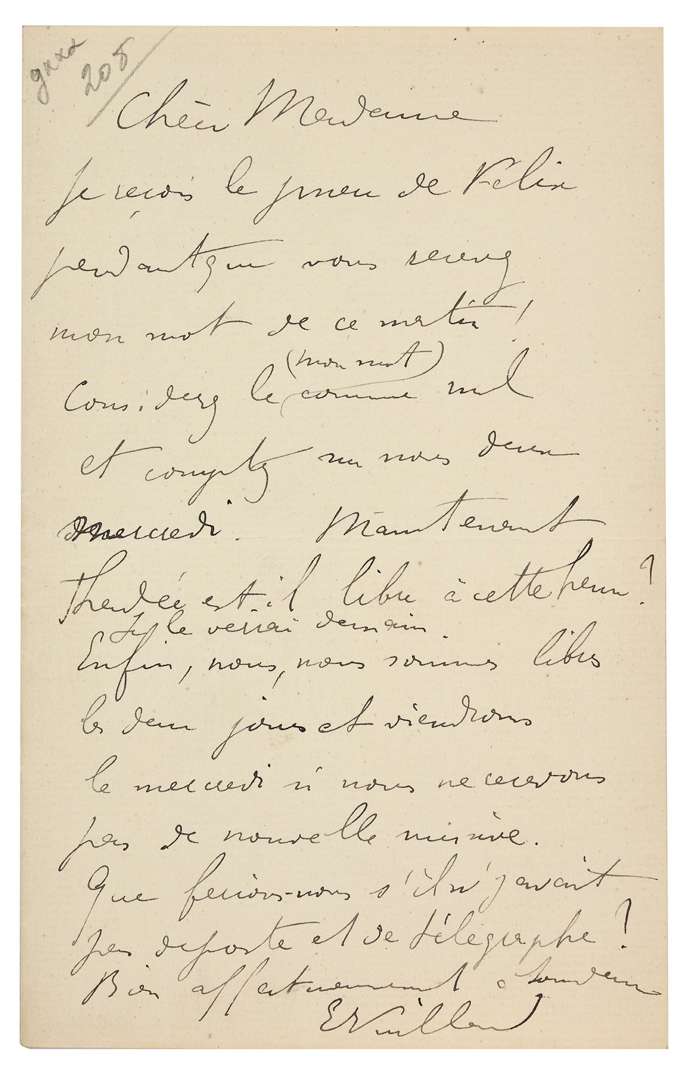 208
Chère Madame
je reçois le pneu de Félix
pendant que vous recevez
mon mot de ce matin !
(mon mot)
Considerez le comme nul
et comptez sur nous deux
mercredi. Maintenant
Thadée est-il libre à cette heure ?
Je le verrai demain.
Enfin, nous, nous sommes libres
les deux jours et viendrons
le mercredi si nous ne recevons
pas de nouvelle missive.
Que ferions-nous s'il n'y avait
pas de poste et de télégraphe ?
Bien affectueusement à tous deux
E Vuillard